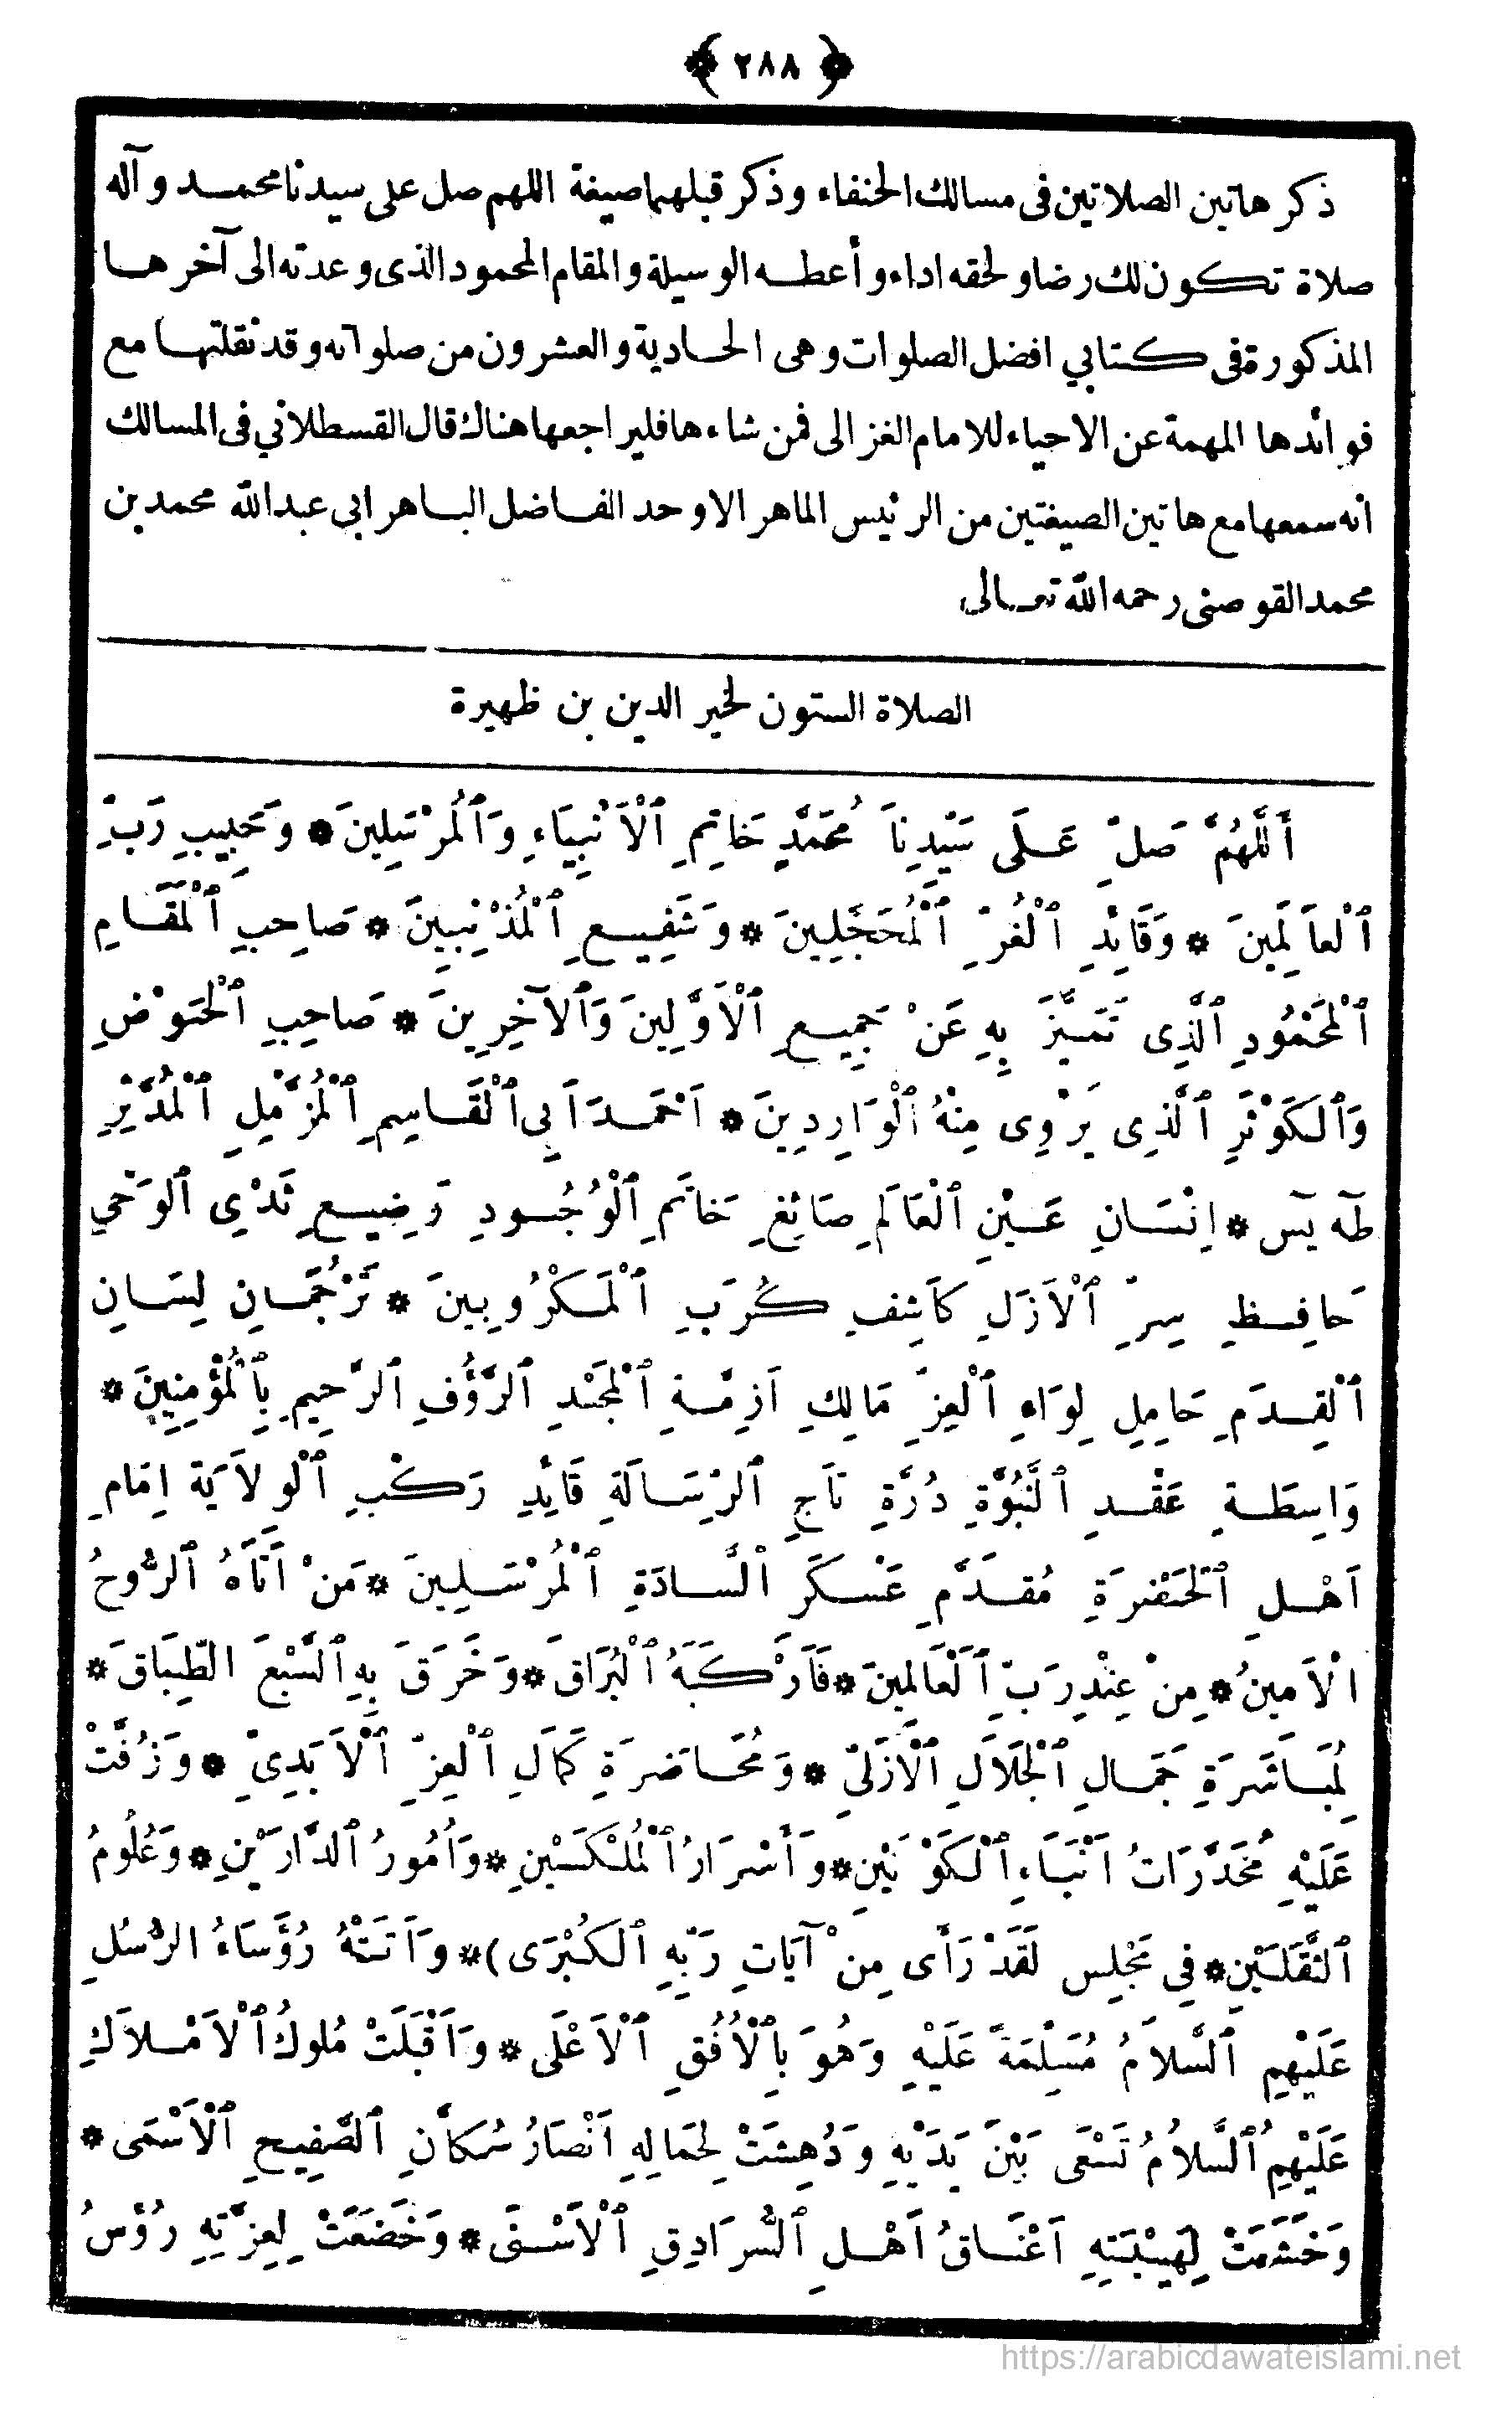 ﴿ ٢٨٨ ﴾
ذكر هاتين الصلاتين فى مسالك الحنفاء وذكر قبلهما صيغة اللهم صل على سيدنا محمد وآله
صلاة تكون لك رضا ولحقه اداء وأعطه الوسيلة والمقام المحمود الذى وعدته الى آخرها
المذكورة فى كتابي افضل الصلوات وهى الحادية والعشرون من صلواته وقد نقلتها مع
فوائدها المهمة عن الاحياء للامام الغزالى فمن شاءها فليراجعها هناك قال القسطلاني فى المسالك
انه سمعها مع هاتين الصيغتين من الرئيس الماهر الاوحد الفاضل الباهر ابي عبد الله محمد بن
محمد القوصنى رحمه الله تعالى
الصلاة الستون لخير الدين بن ظهيرة
أَللَّهُمَّ صَلِّ عَلَى سَيِّدِنَا مُحَمَّدٍ خَاتِمِ ٱلْأَنْبِيَاءِ وَٱلْمُرْسَلِينَ * وَحَبِيبِ رَبِّ
ٱلْعَالَمِينَ * وَقَائِدِ ٱلْغُرِّ ٱلْمُحَجَّلِينَ * وَشَفِيعِ ٱلْمُذْنِبِينَ * صَاحِبِ ٱلْمَقَامِ
ٱلْمَحْمُودِ ٱلَّذِى تَمَيَّزَ بِهِ عَنْ جَمِيعِ ٱلْأَوَّلِينَ وَٱلآخِرِينَ * صَاحِبِ ٱلْحَوْضِ
وَٱلْكَوْثَرِ ٱلَّذِى يَرْوِى مِنْهُ ٱلْوَارِدِينَ * اَحْمَدَ اَبِى ٱلْقَاسِمِ ٱلْمُزَّمِّلِ ٱلْمُدَّثِّرِ
طٰهَ يٰسٓ * اِنْسَانِ عَيْنِ ٱلْعَالَمِ صَائِغِ خَاتَمِ ٱلْوُجُودِ رَضِيعِ ثَدْىِ ٱلْوَحْيِ
حَافِظِ سِرِّ ٱلْأَزَلِ كَاشِفِ كُرَبِ ٱلْمَكْرُوبِينَ * تَرْجُمَانِ لِسَانِ
ٱلْقِدَمِ حَامِلِ لِوَاءِ ٱلْعِزِّ مَالِكِ اَزِمَّةِ ٱلْمَجْدِ ٱلرَّؤُفِ ٱلرَّحِيمِ بِٱلْمُؤْمِنِينَ *
وَاسِطَةِ عَقْدِ ٱلنُّبُوَّةِ دُرَّةِ تَاجِ ٱلرِّسَالَةِ قَائِدِ رَكْبِ ٱلْوِلاَيَةِ اِمَامِ
اَهْلِ ٱلْحَضْرَةِ مُقَدَّمِ عَسْكَرِ ٱلسَّادَةِ ٱلْمُرْسَلِينَ * مَنْ اَتَاهُ ٱلرُّوحُ
ٱلْأَمِينُ * مِنْ عِنْدِ رَبِّ ٱلْعَالَمِينَ * فَاَرْكَبَهُ ٱلْبُرَاقَ * وَخَرَقَ بِهِ ٱلسَّبْعَ الطِّبَاقَ *
لِمُبَاشَرَةِ جَمَالِ ٱلْجَلاَلِ ٱلْأَزَلِىِّ * وَمُحَاضَرَةِ كَمَالِ ٱلْعِزِّ ٱلْأَبَدِىِّ * وَزُفَّتْ
عَلَيْهِ مُخَدَّرَاتُ اَنْبَاءِ ٱلْكَوْنَيْنِ * وَأَسْرَارُ ٱلْمُلْكَيْنِ * وَاُمُورُ ٱلدَّارَيْنِ * وَعُلُومُ
ٱلثَّقَلَيْنِ * فِي مَجْلِسِ لَقَدْ رَأَى مِنْ آيَاتِ رَبِّهِ ٱلْكُبْرَى) * وَاَتَتْهُ رُؤَسَاءُ الرُّسُلِ
عَلَيْهِمِ ٱلسَّلاَمُ مُسَلِّمَةً عَلَيْهِ وَهُوَ بِٱلْأُفُقِ ٱلْأَعْلَى * وَاَقْبَلَتْ مُلُوكُ ٱلْأَمْلاَكِ
عَلَيْهِمُ ٱلسَّلاَمُ تَسْعَى بَيْنَ يَدَيْهِ وَدُهِشَتْ لِجَمَالِهِ اَنْصَارُ سُكَّانِ ٱلصَّفِيحِ ٱلْأَسْمَى *
وَخَشَعَتْ لِهَيْبَتِهِ اَعْنَاقُ اَهْلِ ٱلسُّرَادِقِ ٱلْأَسْنَى * وَخَضَعَتْ لِعِزَّتِهِ رُؤُسُ
https://arabicdawateislami.net